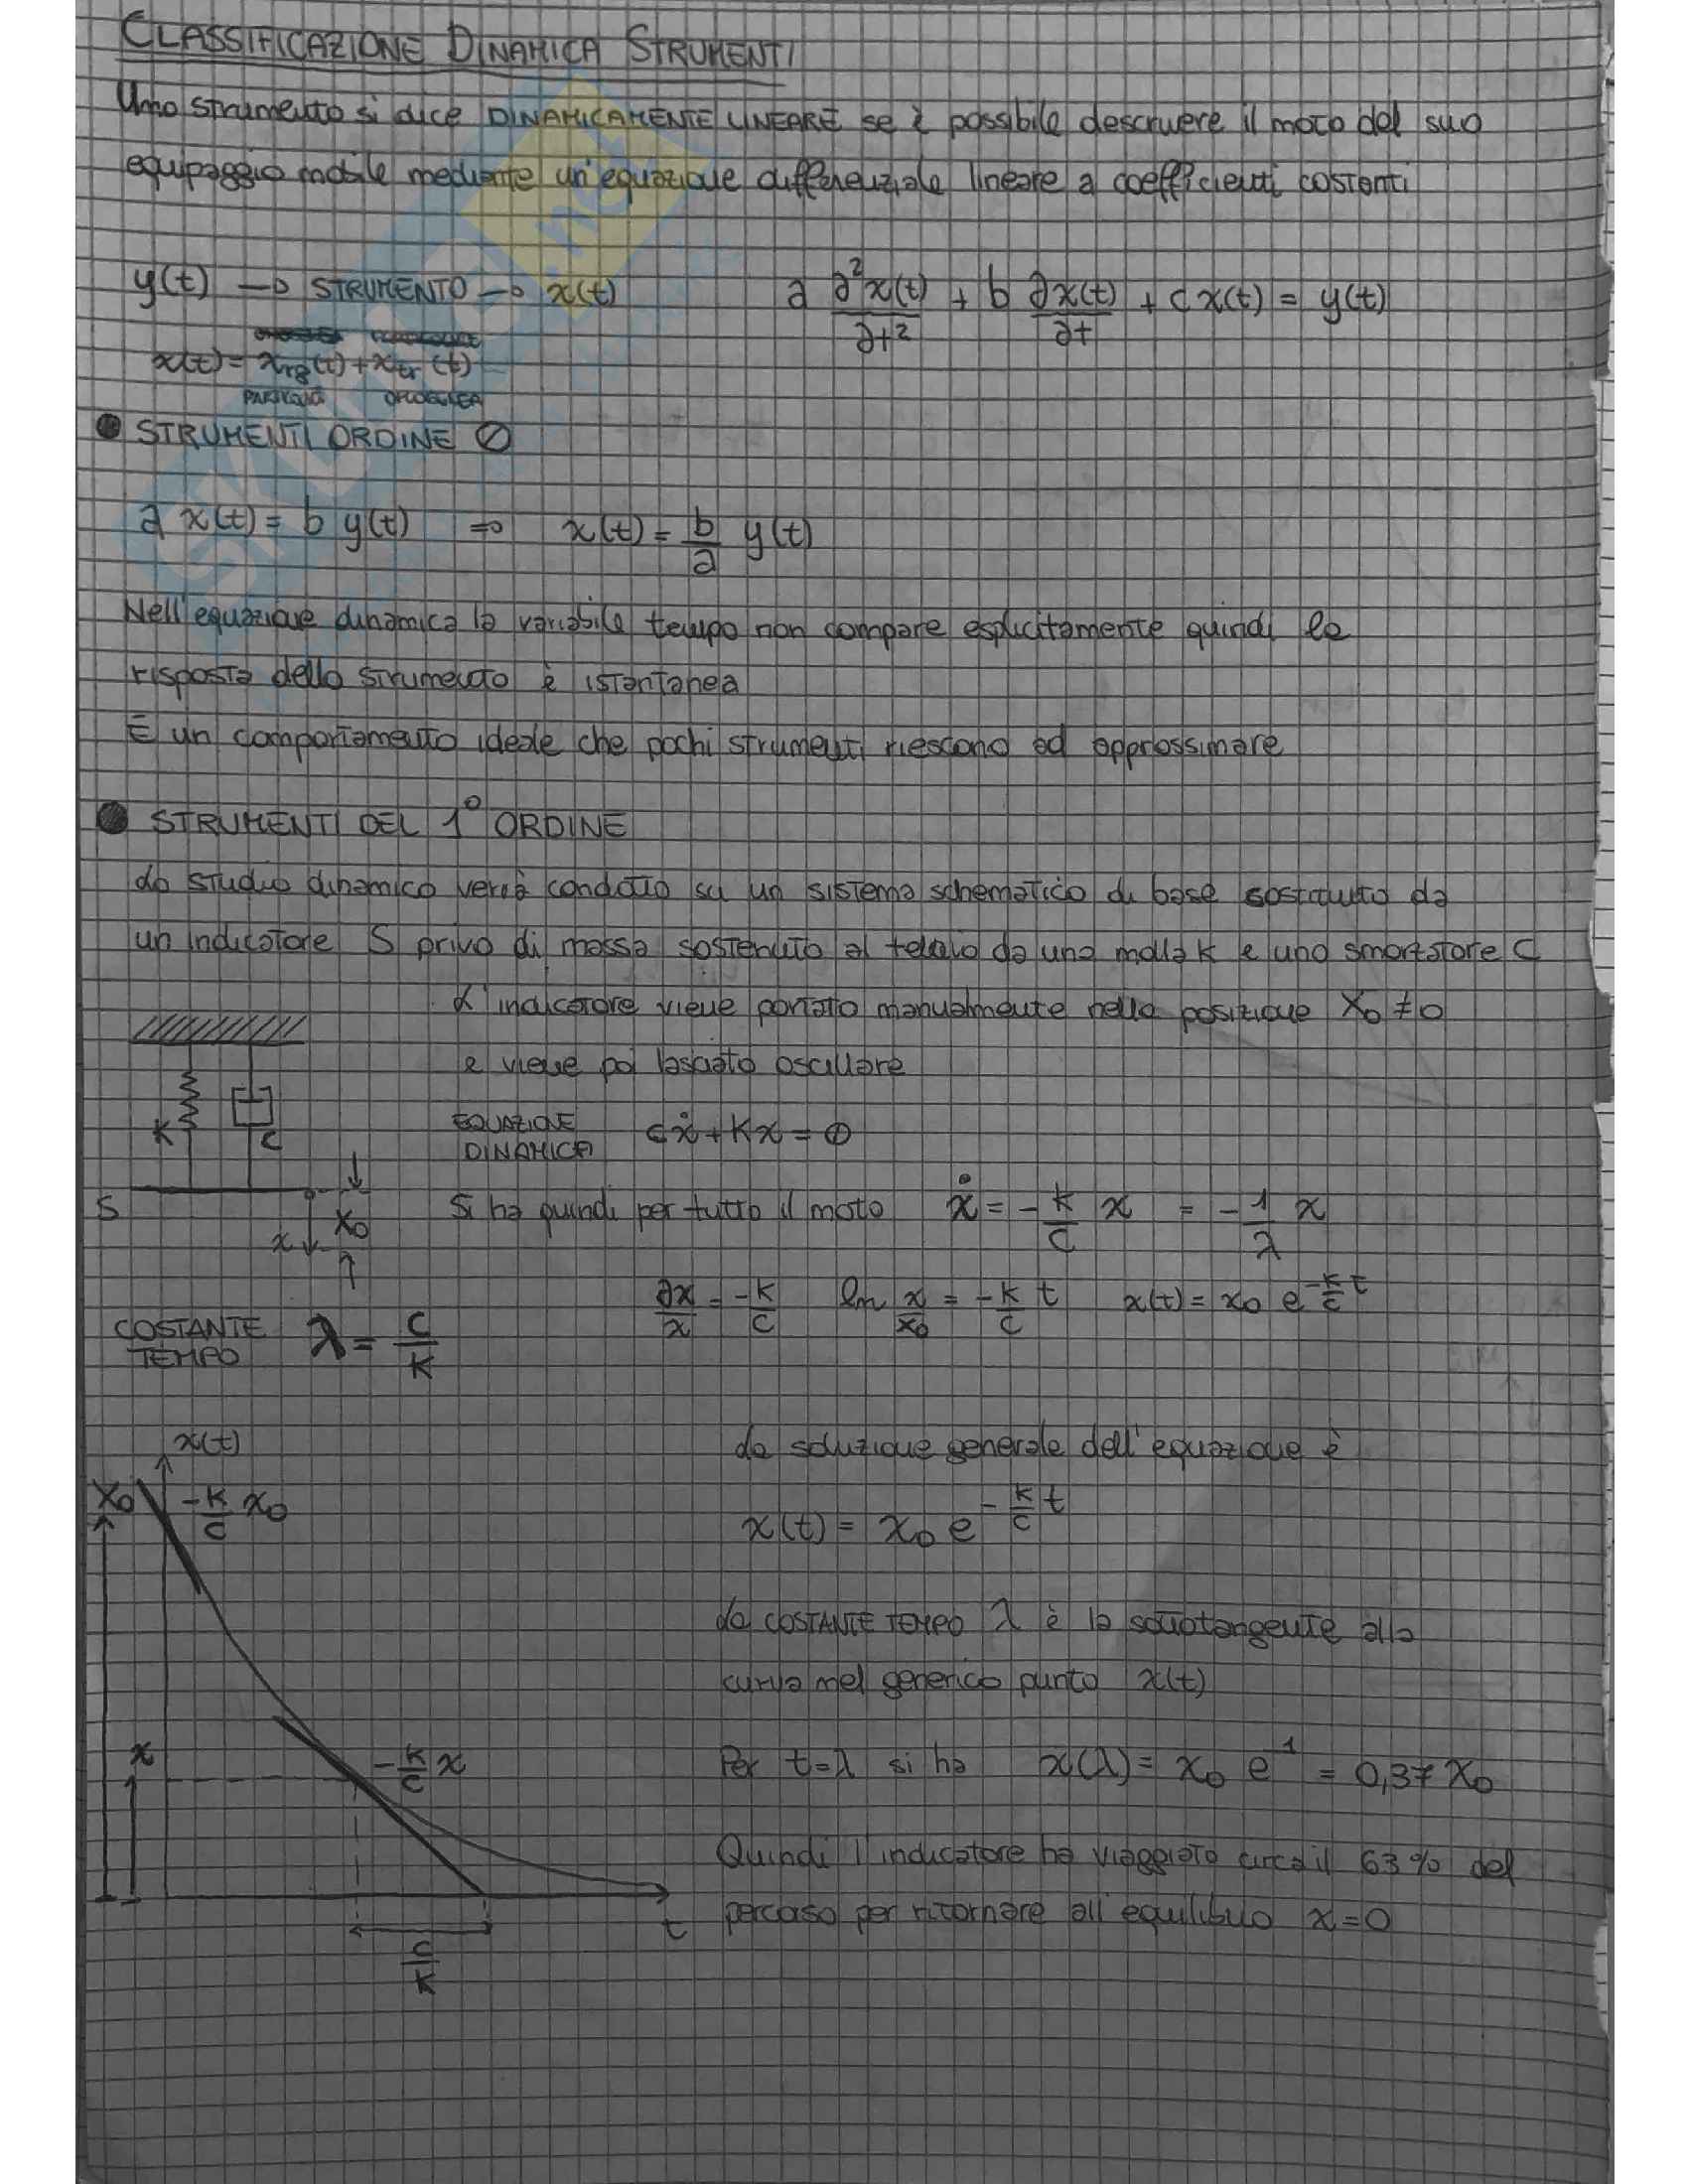 CLASSIFICAZIONE DINAMICA STRUMENTI
Uno strumento si dice DINAMICAMENTE LINEARE se è possibile descrivere il moto del suo
equipaggio mobile mediante un'equazione differenziale lineare a coefficienti costanti
y(t) → STRUMENTO → x(t)   a ∂²x(t)/∂t² + b ∂x(t)/∂t + c x(t) = y(t)
x(t) = xrg(t) + xtr(t)
OMOGENEA
● STRUMENTI ORDINE 0
a x(t) = b y(t) ⇒ x(t) = b/a y(t)
Nell'equazione dinamica la variabile tempo non compare esplicitamente quindi la
risposta dello strumento è istantanea
È un comportamento ideale che pochi strumenti riescono ad approssimare
● STRUMENTI DEL 1° ORDINE
Lo studio dinamico verrà condotto su un sistema schematico di base costituito da
un indicatore S privo di massa sostenuto al telaio da una molla K e uno smorzatore C
L'indicatore viene portato manualmente nella posizione X0 ≠ 0
e viene poi lasciato oscillare
K C
EQUAZIONE DINAMICA cẋ + Kx = 0
S x X0
Si ha quindi per tutto il moto ẋ = -k/c x = -1/λ x
∂x/x = -k/c   ln x/x0 = -k/c t   x(t) = x0 e^-k/c t
COSTANTE TEMPO λ = c/k
x(t)
La soluzione generale dell'equazione è
X0 -k/c x0
x(t) = x0 e^-k/c t
La COSTANTE TEMPO λ è la sottotangente alla
curva nel generico punto x(t)
x -k/c x
Per t=λ si ha x(λ) = x0 e^-1 = 0,37 X0
Quindi l'indicatore ha viaggiato circa il 63% del
percorso per ritornare all'equilibrio x=0
t
c/k